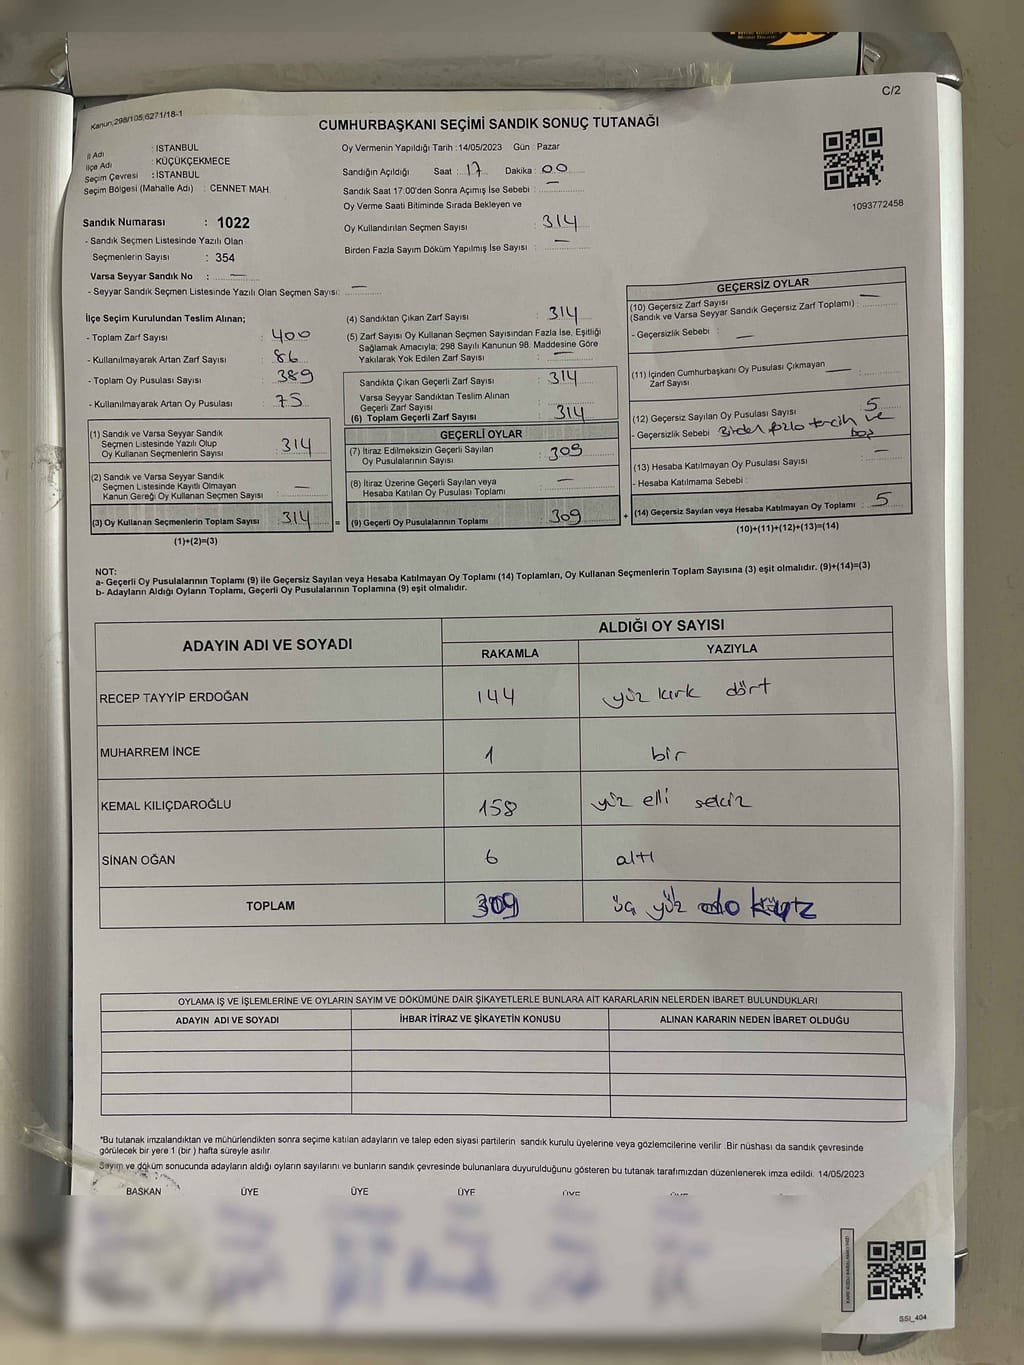 C/2
Kanun;298/105,6271/18-1
CUMHURBAŞKANI SEÇİMİ SANDIK SONUÇ TUTANAĞI
İl Adı : İSTANBUL
İlçe Adı : KÜÇÜKÇEKMECE
Seçim Çevresi : İSTANBUL
Seçim Bölgesi (Mahalle Adı) : CENNET MAH.
Oy Vermenin Yapıldığı Tarih :14/05/2023 Gün : Pazar
Sandığın Açıldığı Saat : 17 Dakika : 00
Sandık Saat 17:00'den Sonra Açımış İse Sebebi : —
Oy Verme Saati Bitiminde Sırada Bekleyen ve
Oy Kullandırılan Seçmen Sayısı : 314
Birden Fazla Sayım Döküm Yapılmış İse Sayısı : —
1093772458
Sandık Numarası : 1022
- Sandık Seçmen Listesinde Yazılı Olan
Seçmenlerin Sayısı : 354
Varsa Seyyar Sandık No : —
- Seyyar Sandık Seçmen Listesinde Yazılı Olan Seçmen Sayısı: —
İlçe Seçim Kurulundan Teslim Alınan;
- Toplam Zarf Sayısı : 400
- Kullanılmayarak Artan Zarf Sayısı : 86
- Toplam Oy Pusulası Sayısı : 389
- Kullanılmayarak Artan Oy Pusulası : 75
(1) Sandık ve Varsa Seyyar Sandık
Seçmen Listesinde Yazılı Olup
Oy Kullanan Seçmenlerin Sayısı : 314
(2) Sandık ve Varsa Seyyar Sandık
Seçmen Listesinde Kayıtlı Olmayan
Kanun Gereği Oy Kullanan Seçmen Sayısı : —
(3) Oy Kullanan Seçmenlerin Toplam Sayısı : 314
(1)+(2)=(3)
(4) Sandıktan Çıkan Zarf Sayısı : 314
(5) Zarf Sayısı Oy Kullanan Seçmen Sayısından Fazla İse, Eşitliği
Sağlamak Amacıyla; 298 Sayılı Kanunun 98. Maddesine Göre
Yakılarak Yok Edilen Zarf Sayısı : —
Sandıkta Çıkan Geçerli Zarf Sayısı : 314
Varsa Seyyar Sandıktan Teslim Alınan
Geçerli Zarf Sayısı :
(6) Toplam Geçerli Zarf Sayısı : 314
GEÇERLİ OYLAR
(7) İtiraz Edilmeksizin Geçerli Sayılan
Oy Pusulalarının Sayısı : 309
(8) İtiraz Üzerine Geçerli Sayılan veya
Hesaba Katılan Oy Pusulası Toplamı : —
= (9) Geçerli Oy Pusulalarının Toplamı : 309
GEÇERSİZ OYLAR
(10) Geçersiz Zarf Sayısı
(Sandık ve Varsa Seyyar Sandık Geçersiz Zarf Toplamı) : —
- Geçersizlik Sebebi : —
(11) İçinden Cumhurbaşkanı Oy Pusulası Çıkmayan
Zarf Sayısı : —
(12) Geçersiz Sayılan Oy Pusulası Sayısı : 5
- Geçersizlik Sebebi Birden fazla tercih ve
boş
(13) Hesaba Katılmayan Oy Pusulası Sayısı : —
- Hesaba Katılmama Sebebi :
+ (14) Geçersiz Sayılan veya Hesaba Katılmayan Oy Toplamı : 5
(10)+(11)+(12)+(13)=(14)
NOT:
a- Geçerli Oy Pusulalarının Toplamı (9) ile Geçersiz Sayılan veya Hesaba Katılmayan Oy Toplamı (14) Toplamları, Oy Kullanan Seçmenlerin Toplam Sayısına (3) eşit olmalıdır. (9)+(14)=(3)
b- Adayların Aldığı Oyların Toplamı, Geçerli Oy Pusulalarının Toplamına (9) eşit olmalıdır.
ADAYIN ADI VE SOYADI
ALDIĞI OY SAYISI
RAKAMLA YAZIYLA
RECEP TAYYİP ERDOĞAN 144 yüz kırk dört
MUHARREM İNCE 1 bir
KEMAL KILIÇDAROĞLU 158 yüz elli sekiz
SİNAN OĞAN 6 altı
TOPLAM 309 üç yüz dokuz
OYLAMA İŞ VE İŞLEMLERİNE VE OYLARIN SAYIM VE DÖKÜMÜNE DAİR ŞİKAYETLERLE BUNLARA AİT KARARLARIN NELERDEN İBARET BULUNDUKLARI
ADAYIN ADI VE SOYADI İHBAR İTİRAZ VE ŞİKAYETİN KONUSU ALINAN KARARIN NEDEN İBARET OLDUĞU
*Bu tutanak imzalandıktan ve mühürlendikten sonra seçime katılan adayların ve talep eden siyasi partilerin sandık kurulu üyelerine veya gözlemcilerine verilir .Bir nüshası da sandık çevresinde
görülecek bir yere 1 (bir ) hafta süreyle asılır.
Sayım ve döküm sonucunda adayların aldığı oyların sayılarını ve bunların sandık çevresinde bulunanlara duyurulduğunu gösteren bu tutanak tarafımızdan düzenlenerek imza edildi. 14/05/2023
BAŞKAN ÜYE ÜYE ÜYE ÜYE ÜYE
SSI_404